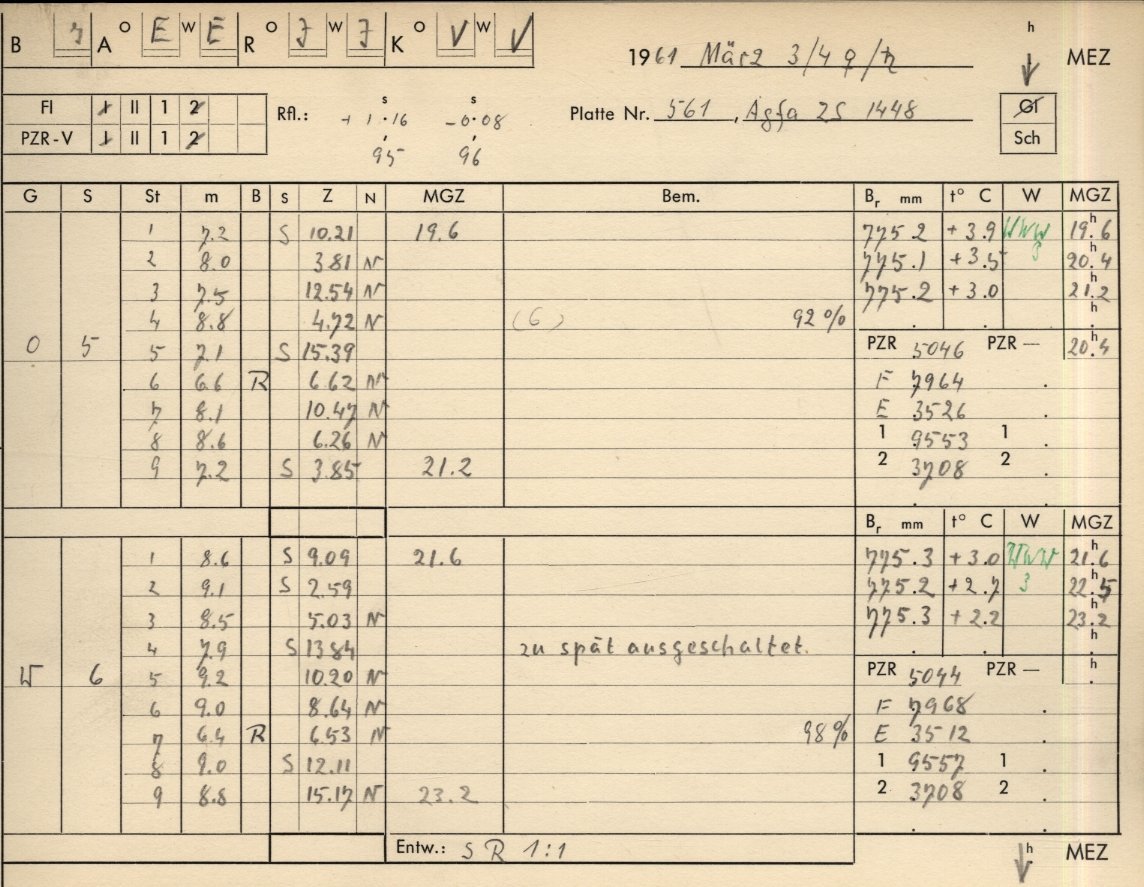 B 7 A o E w E R o J w J K o V w V
h
1961 März 3/4 ♀/♄ MEZ
FI I II 1 2
PZR-V I II 1 2
Rfl.: s + 1.16 s -0.08
95 96
Platte Nr. 561, Agfa ZS 1448
Gl
Sch
G S St m B S Z N MGZ Bem. Br mm t° C W MGZ
1 7.2 S 10.21 19.6 775.2 +3.9 WNW 19.6
2 8.0 3.81 N 775.1 +3.5 3 20.4
3 7.5 12.54 N 775.2 +3.0 21.2
4 8.8 4.72 N (6) 92%
O 5 5 7.1 S 15.39 PZR 5046 PZR — 20.4
6 6.6 B R 6.62 N F 7964
7 8.1 10.47 N E 3526
8 8.6 6.26 N 1 9553 1
9 7.2 S 3.85 21.2 2 3708 2
Br mm t° C W MGZ
1 8.6 S 9.09 21.6 775.3 +3.0 WNW 21.6
2 9.1 S 2.59 775.2 +2.7 3 22.5
3 8.5 5.03 N 775.3 +2.2 23.2
4 7.9 S 13.84 zu spät ausgeschaltet.
W 6 5 9.2 10.20 N PZR 5044 PZR —
6 9.0 8.64 N F 7968
7 6.4 R 6.53 N 98% E 3512
8 9.0 S 12.11 1 9557 1
9 8.8 15.17 N 23.2 2 3708 2
Entw.: S R 1:1 h MEZ